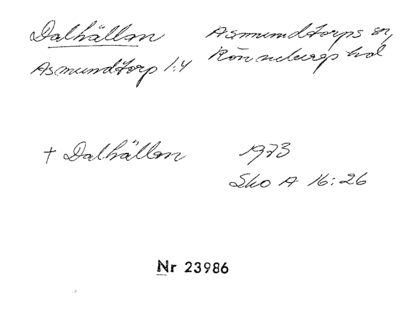 Dalhällan Asmundtorps sn,
Asmundtorp 1:4 Rönnebergs hd
† Dalhällan 1973
Sko A 16:26
Nr 23986